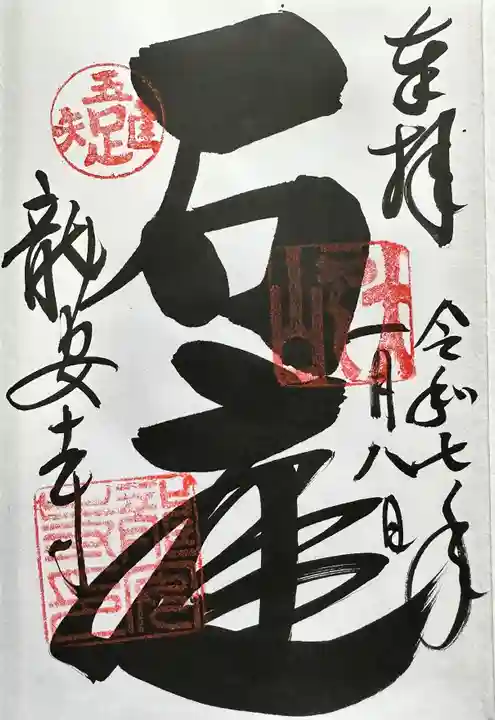 奉拝
令和七年
一月八日
石庭
吾唯足知
龍安寺